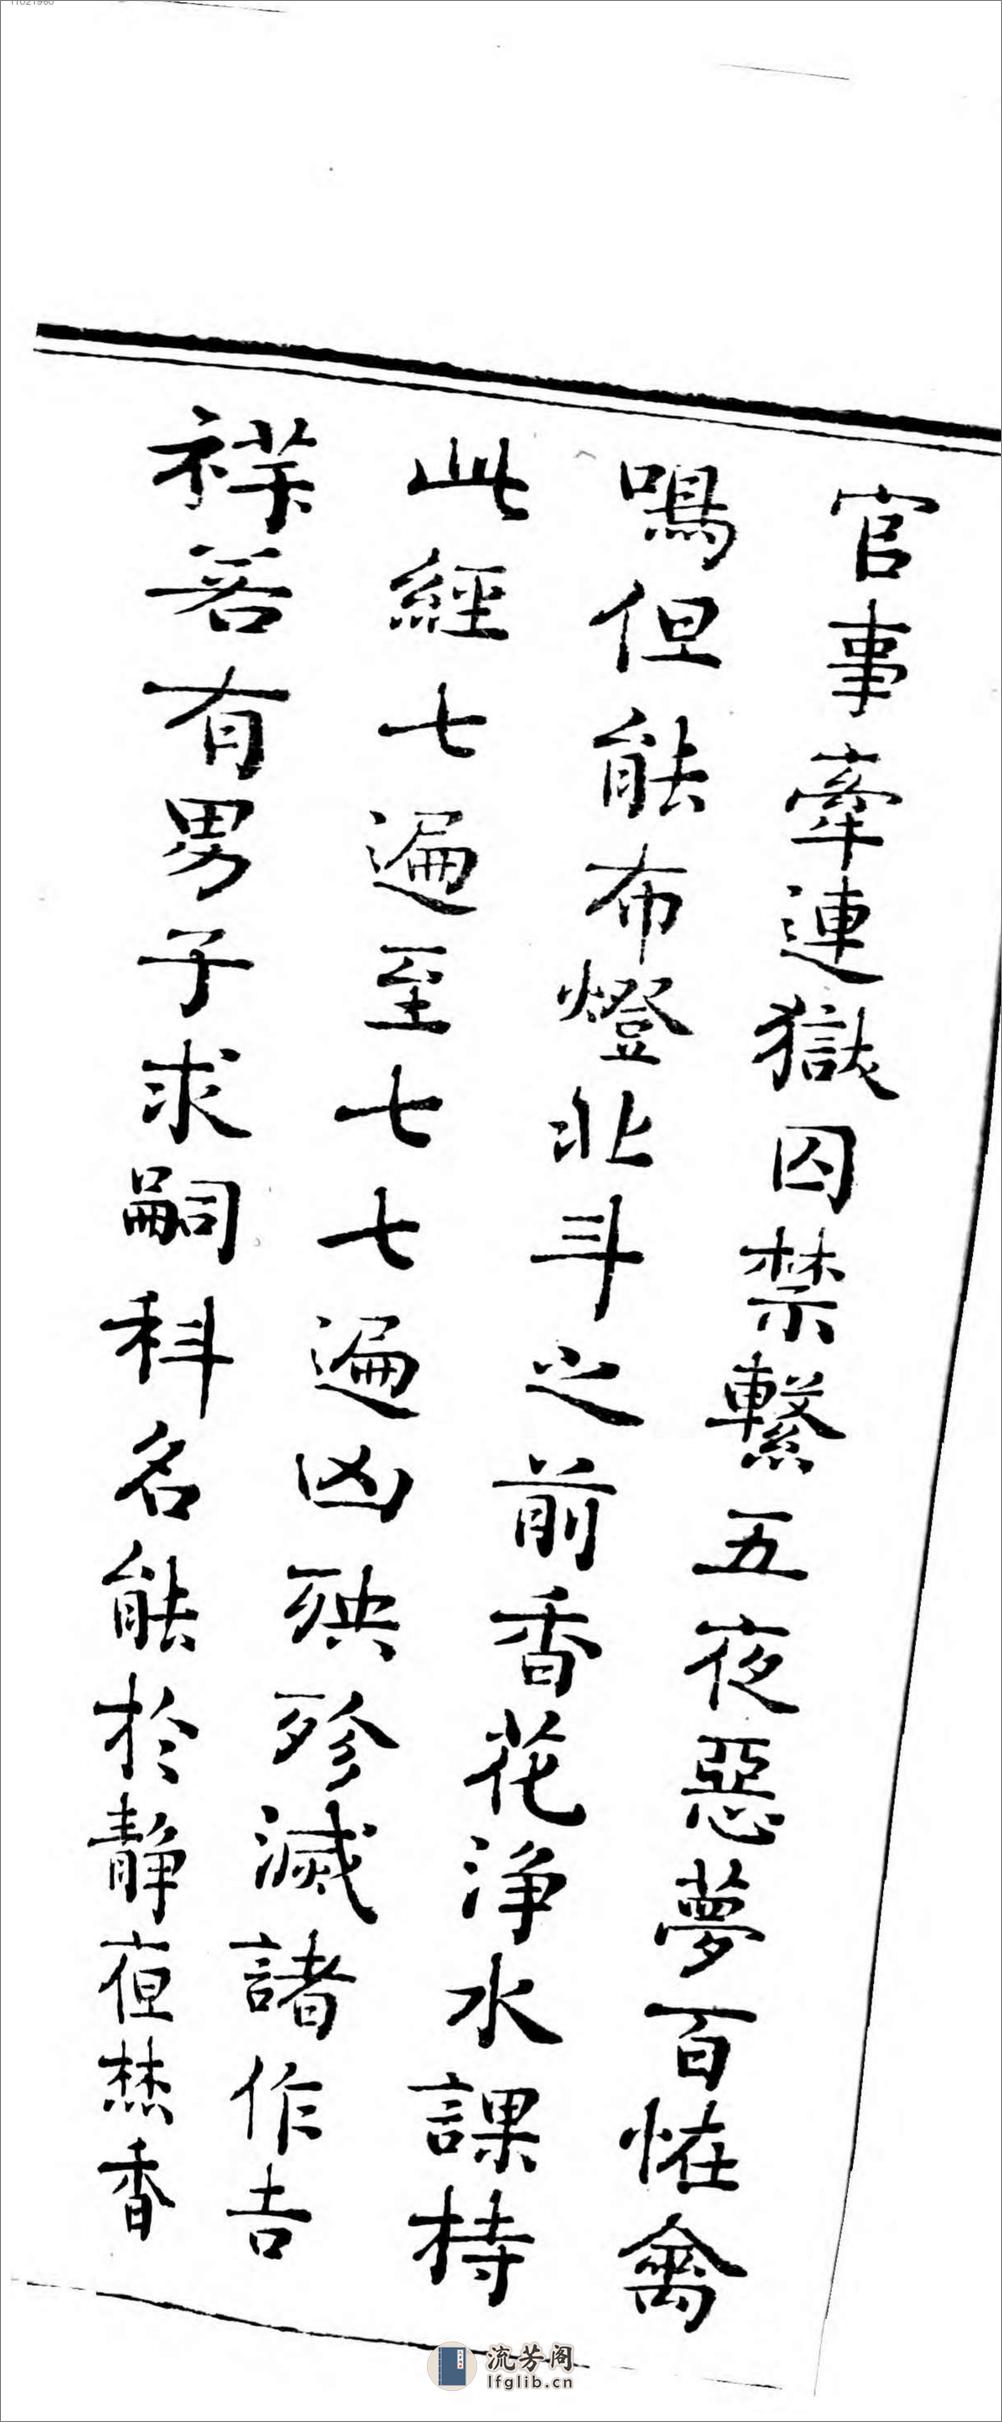 官事牽連獄囚禁繫五夜惡夢百恠禽
鳴但能布燈北斗之前香花淨水課持
此經七遍至七七遍凶殃殄滅諸作吉
祥若有男子求嗣科名能於靜夜焚香
流芳阁
lfglib.cn